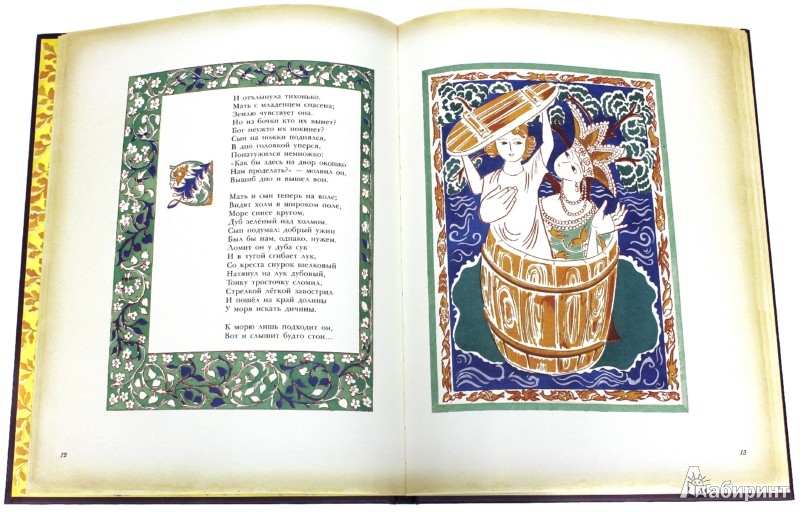 И отхлынула тихонько.
Мать с младенцем спасена;
Землю чувствует она.
Но из бочки кто их вынет?
Бог неужто их покинет?
Сын на ножки поднялся,
В дно головкой уперся,
Понатужился немножко:
«Как бы здесь на двор окошко
Нам проделать?» — молвил он,
Вышиб дно и вышел вон.
Мать и сын теперь на воле;
Видят холм в широком поле,
Море синее кругом,
Дуб зелёный над холмом.
Сын подумал: добрый ужин
Был бы нам, однако, нужен.
Ломит он у дуба сук
И в тугой сгибает лук,
Со креста снурок шелковый
Натянул на лук дубовый,
Тонку тросточку сломил,
Стрелкой лёгкой завострил
И пошёл на край долины
У моря искать дичины.
К морю лишь подходит он,
Вот и слышит будто стон...
12
13
Лабиринт